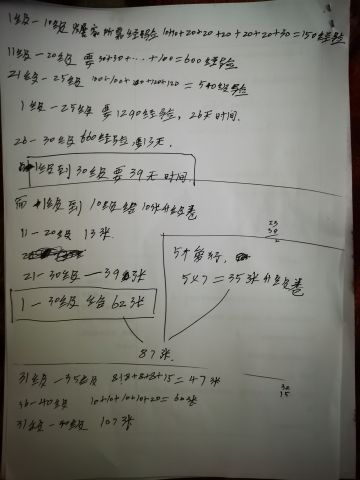 1级-10级 需要 经验 10+10+20+20+20+20+20+30=150经验
11级-20级 要 30+30+…+100=600经验
21级-25级 100+100+100+120+120=540经验
1级-25级 要 1290经验, 26天时间.
26-30级 660经验 要13天.
1级到30级要39天时间.
而1级到10级给10张升级卷
11-20级 13张.
21-30级—39张
1-30级 给62张
5个
5×7=35张升级卷
87张.
31级-35级 8+8+8+8+15=47张
36-40级 10+10+10+10+20=60张
31级-40级 107张